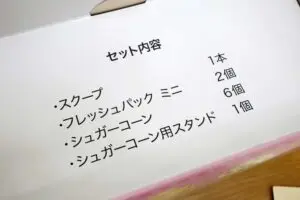 セット内容
・スクープ 1本
・フレッシュパック ミニ 2個
・シュガーコーン 6個
・シュガーコーン用スタンド 1個